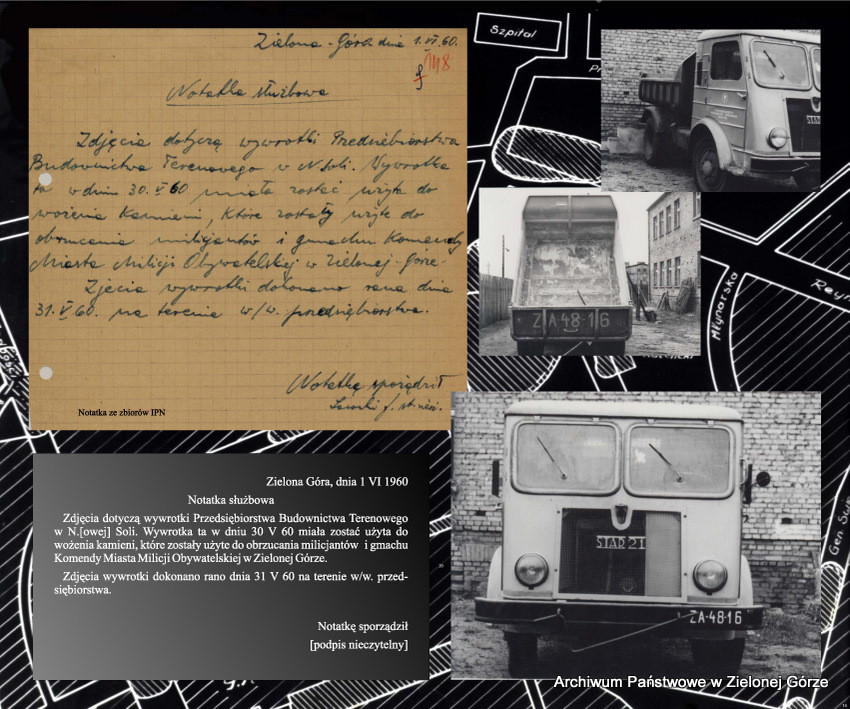 Zielona-Góra dnia 1.VI.60.
148
Notatka służbowa
Zdjęcia dotyczą wywrotki Przedsiębiorstwa
Budownictwa Terenowego w N.Soli. Wywrotka
ta w dniu 30.V.60 miała zostać użyta do
wożenia kamieni, które zostały użyte do
obrzucania milicjantów i gmachu Komendy
Miasta Milicji Obywatelskiej w Zielonej-Górze.
Zjęcia wywrotki dokonano rano dnia
31.V.60. na terenie w/w. przedsiębiorstwa.
Notatkę sporządził
Notatka ze zbiorów IPN
Szpital
ZA 48-16
Młynarska
STAR 21
ZA-48-16
Zielona Góra, dnia 1 VI 1960
Notatka służbowa
Zdjęcia dotyczą wywrotki Przedsiębiorstwa Budownictwa Terenowego
w N.[owej] Soli. Wywrotka ta w dniu 30 V 60 miała zostać użyta do
wożenia kamieni, które zostały użyte do obrzucania milicjantów i gmachu
Komendy Miasta Milicji Obywatelskiej w Zielonej Górze.
Zdjęcia wywrotki dokonano rano dnia 31 V 60 na terenie w/w. przed-
siębiorstwa.
Notatkę sporządził
[podpis nieczytelny]
Archiwum Państwowe w Zielonej Górze